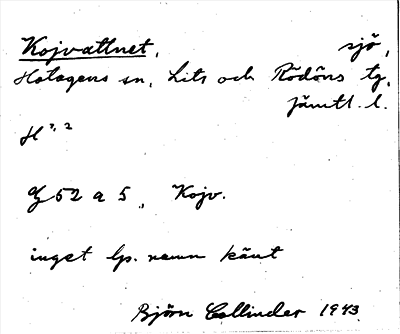 Kojvattnet, sjö,
Hotagens sn, Lits och Rödöns tg,
Jämtl. l.
H 7, 2
G 52 a 5, Kojv.
inget lp. namn känt
Björn Collinder 1943